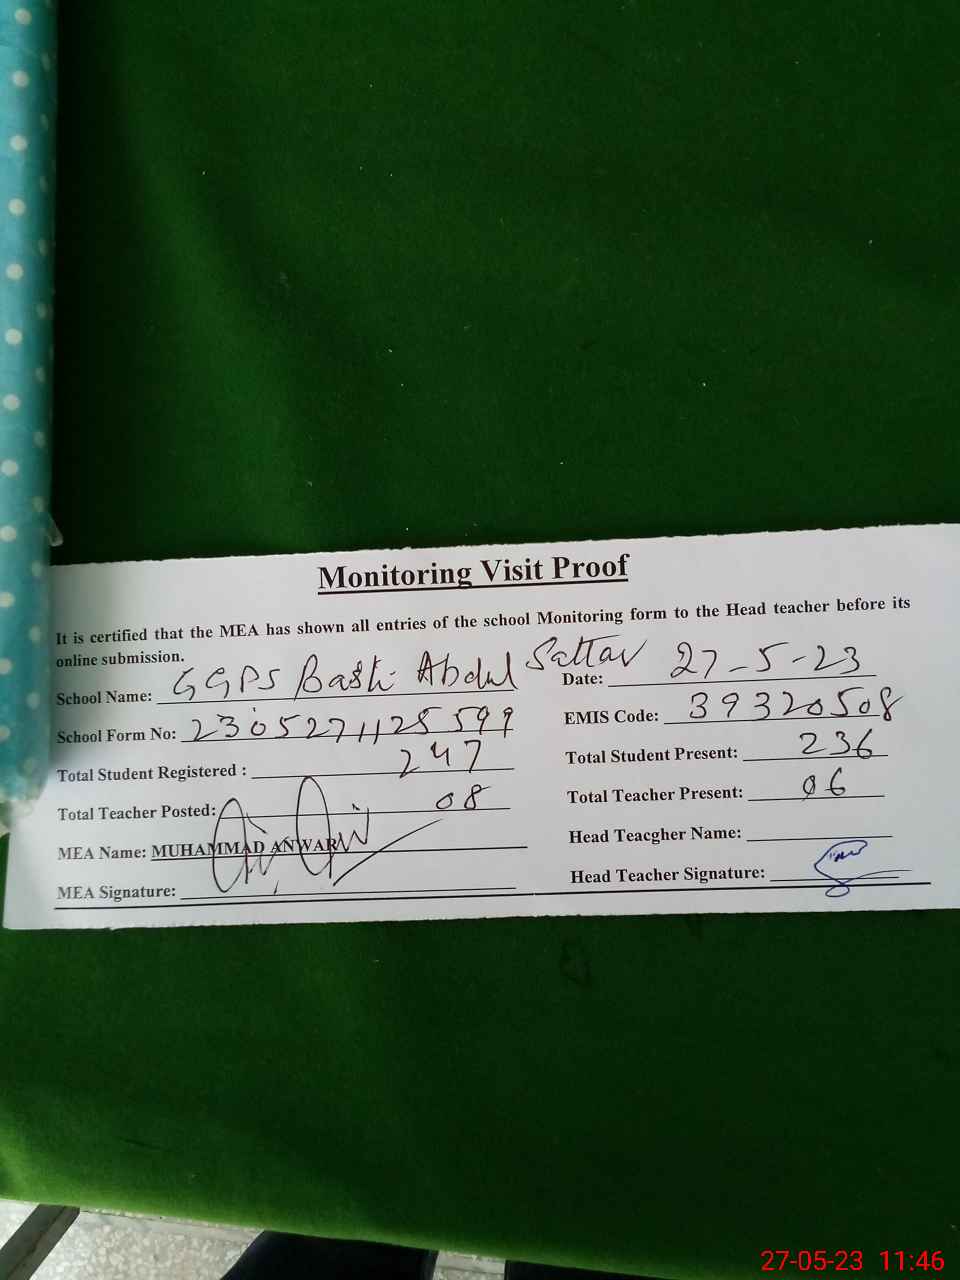 Monitoring Visit Proof
It is certified that the MEA has shown all entries of the school Monitoring form to the Head teacher before its
online submission.
School Name: GGPS Basti Abdul Sattar
Date: 27-5-23
School Form No: 2305271125599
EMIS Code: 39320508
Total Student Registered : 247
Total Student Present: 236
Total Teacher Posted: 08
Total Teacher Present: 06
MEA Name: MUHAMMAD ANWAR
Head Teacgher Name:
MEA Signature:
Head Teacher Signature:
27-05-23 11:46